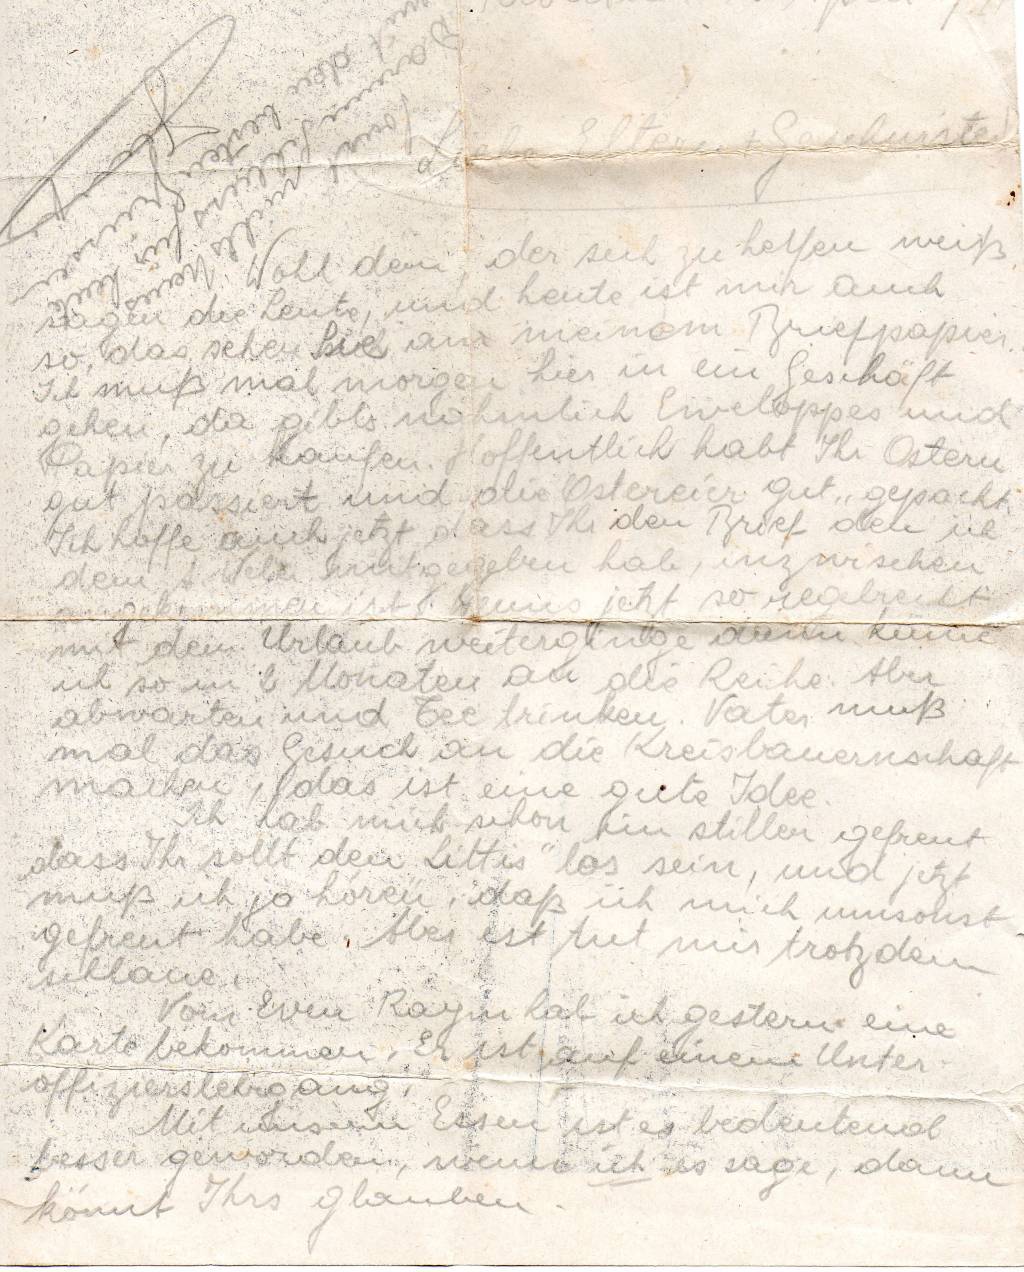 Liebe Eltern + Geschwister!
Wohl dem, der sich zu helfen weiß
sagen die Leute, und heute ist mir auch
so, das sehen Sie an meinem Briefpapier.
Ich muß mal morgen hier in ein Geschäft
gehen, da gibts nähmlich Enveloppes und
Papier zu kaufen. Hoffentlich habt Ihr Ostern
gut passiert und die Ostereier gut
Ich hoffe auch jetzt dass Ihr den Brief den ich
dem mitgegeben hab, inzwischen
ist. Wenns jetzt so
mit dem Urlaub weiterginge dann käme
ich so in 2 Monaten an die Reihe. Aber
abwarten und Tee trinken. Vater muß
mal das Gesuch an die Kreisbauernschaft
machen, das ist eine gute Idee.
Ich hab mich schon hin stiller gefreut
dass Ihr sollt den Littis" los sein, und jetzt
muß ich ja hören, daß ich mich umsonst
gefreut habe. Aber es tut mir trotzdem
Vom Even Raym hab ich gestern eine
Karte bekommen. Er ist auf einem Unter-
offizierslehrgang.
Mit unserm Essen ist es bedeutend
besser geworden, wenn ich es sage, dann
könnt Ihrs glauben.
sonst nichts neues für heute
mit den besten Grüssen